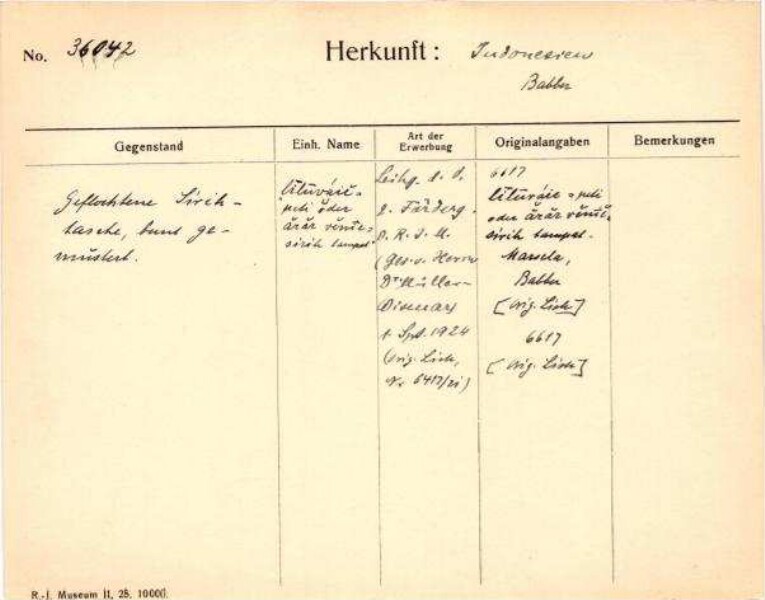 No. 36042 Herkunft: Indonesien
Babber
Gegenstand
Einh. Name
Art der Erwerbung
Originalangaben
Bemerkungen
Geflochtene Sirih-
tasche, bunt ge-
mustert.
lituváie-
peti oder
ărăr
sirih tampat"
Leihg. d. d.
z. Förderg.
d. R. J. M.
(Ges. v. Herrn
Dr Müller-
Wismar)
1. Spt. 1924
(Orig. Liste,
6617
lituváie-peti
oder ărăr
sirih tampat-
Marsela,
Babber
[Orig. Liste]
6617
[Orig. Liste]
R.-J. Museum II. 28. 10000.